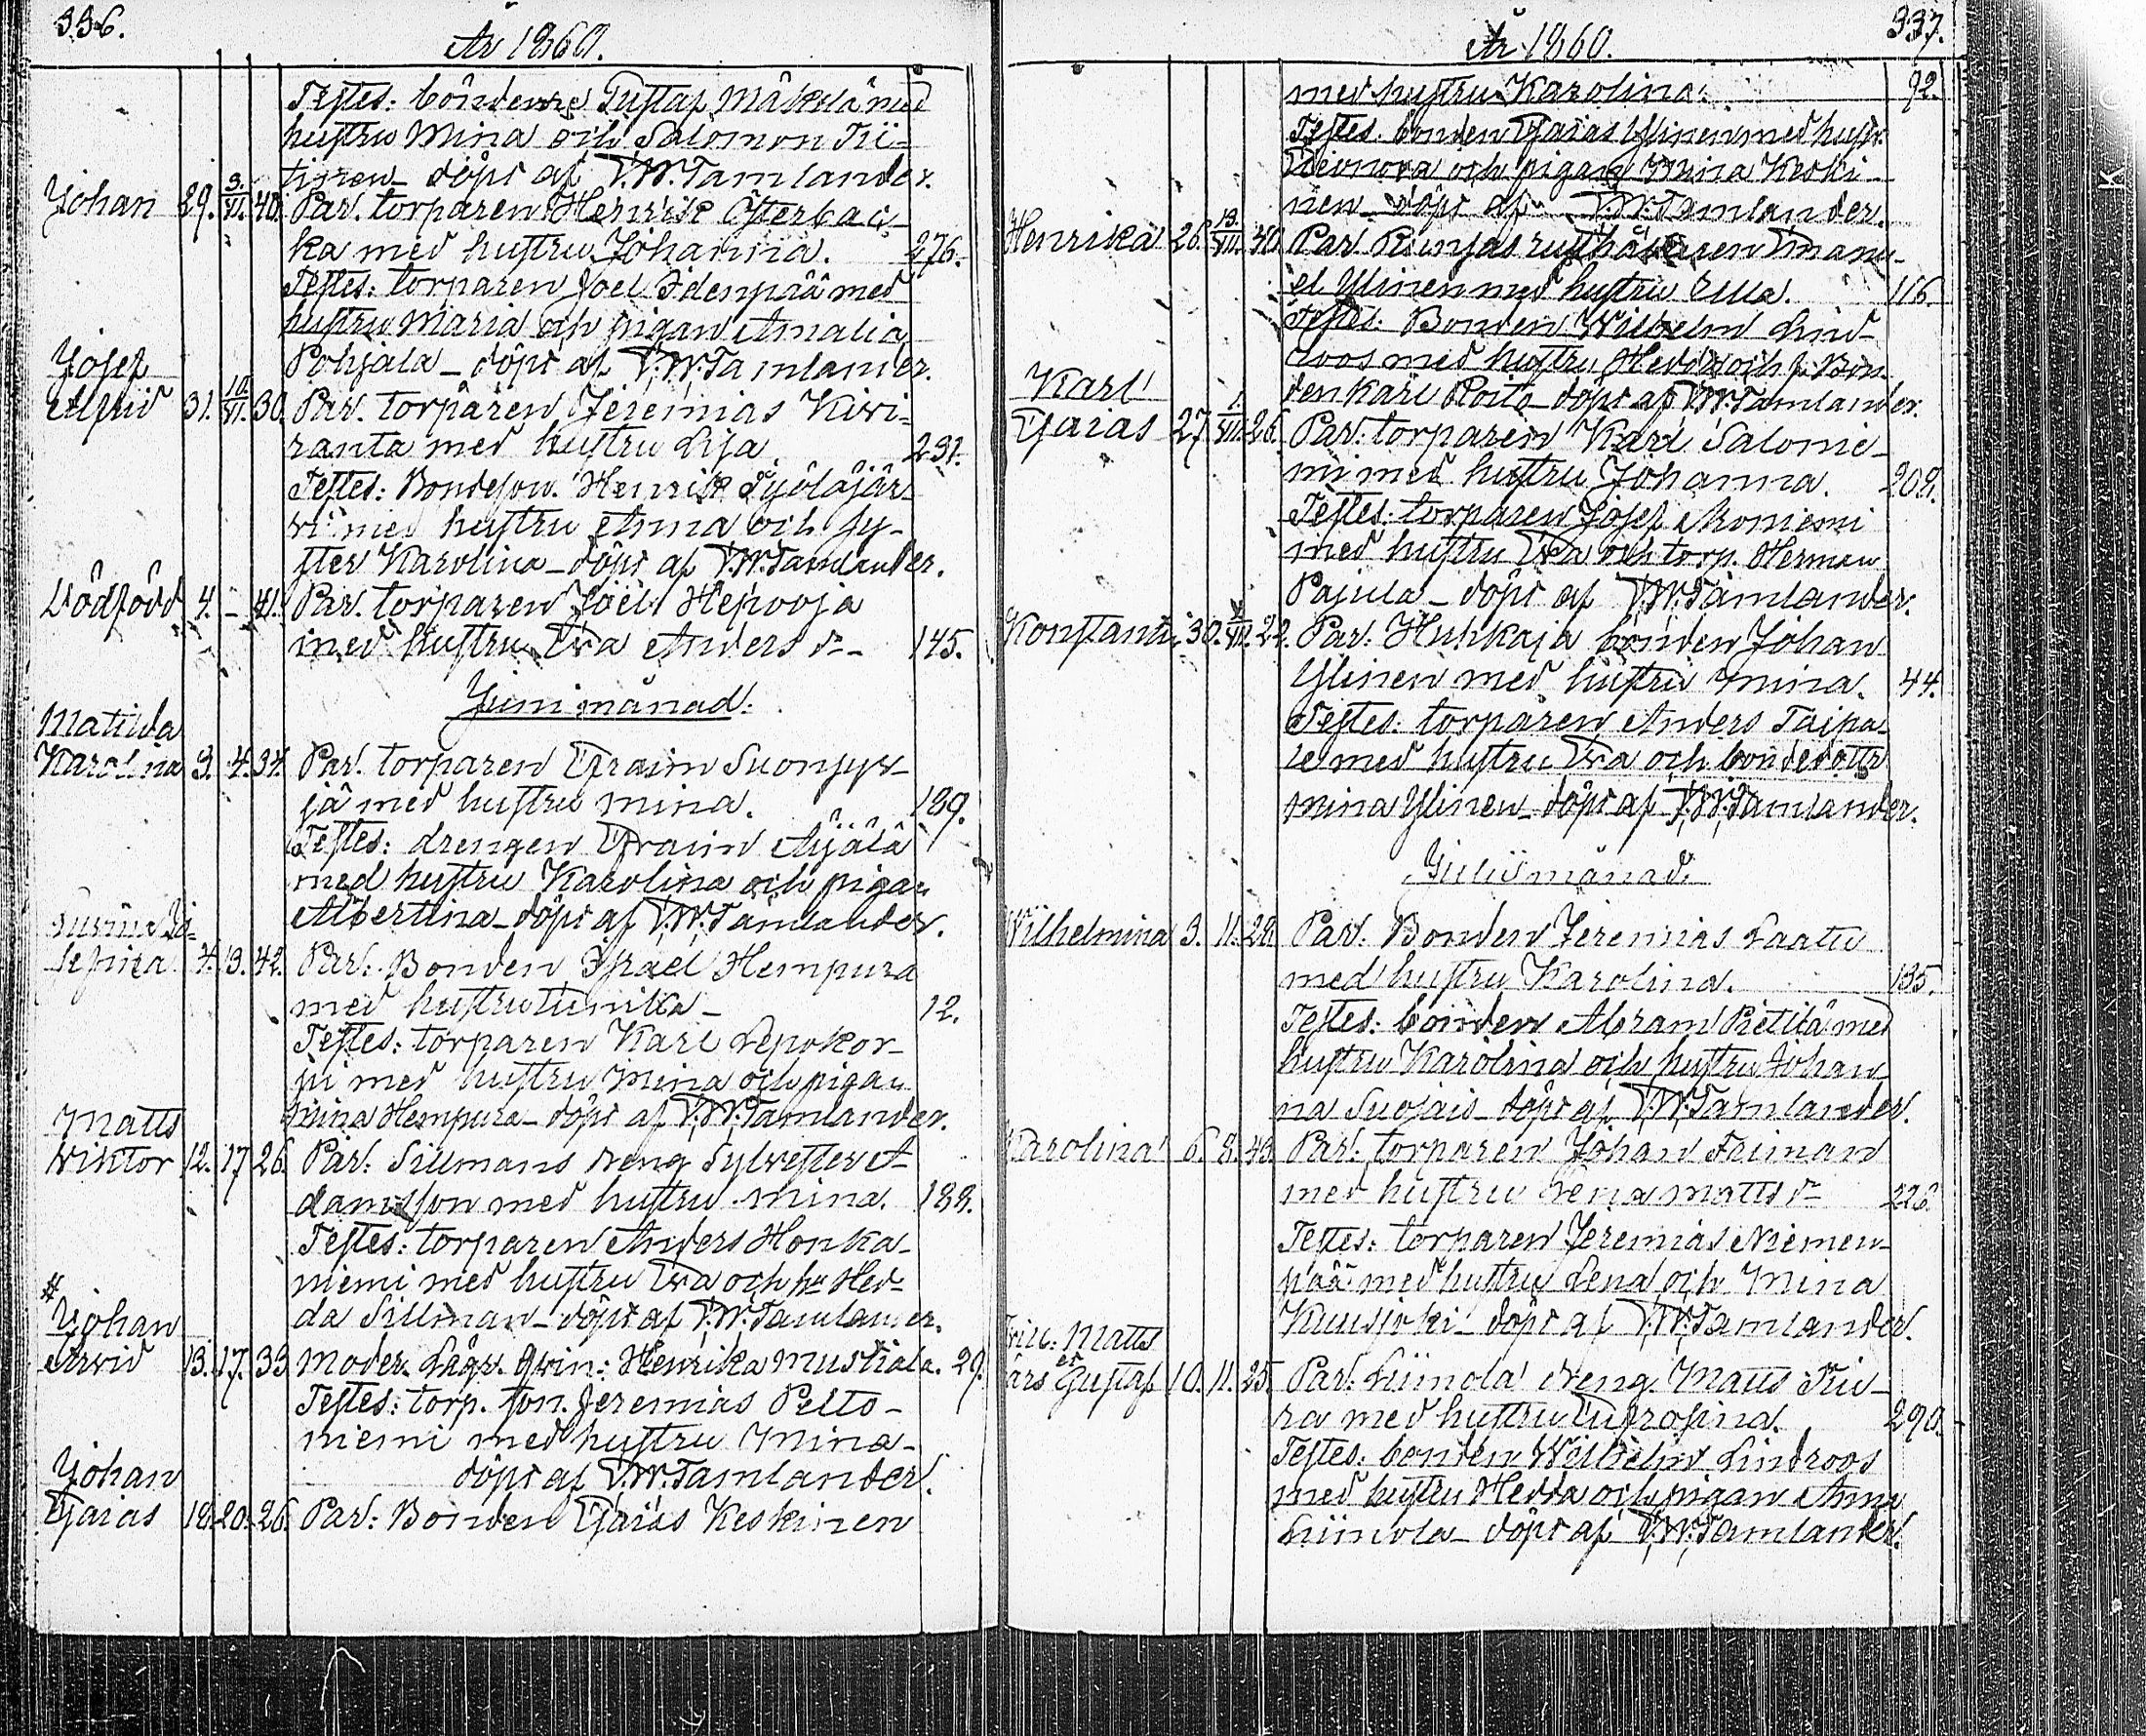 336.
År 1860.
Testes: bönderne Gustaf Mäkelä med
hustru Mina och Salomon Tii-
tinen döpt af V.W. Tamlander.
Johan 29. 3./VI. 40. Par. torparen Henrik Österbac-
ka med hustru Johanna. 276.
Testes: torparen Joel Idenpää med
hustru Maria och pigan Amalia
Pohjala – döpt af V.W. Tamlander.
Josef
Alfrid 31. 10./VI. 30. Par. torparen Jeremias Kivi-
ranta med hustru Lisa 231.
Testes: Bondeson. Henrik Syöläjär-
vi med hustru Anna och sy-
ster Karolina – döpt af V.W. Tamlander.
Dödfödd 4. – 41. Par. torparen Joel Hepooja
med hustru Eva Anders dr 145.
Juni månad.
Matilda
Karolina 3. 4. 34. Par. torparen Efraim Suonpyr-
jä med hustru Mina. 189.
Testes: drengen Efraim Äijälä
med hustru Karolina och pigan
Albertina – döpt af V.W. Tamlander.
Jo-
sefina 4. 13. 42. Par. Bonden Israel Hempura
med hustru Ulrika – 12.
Testes: torparen Karl Lepokor-
pi med hustru Mina och pigan
Mina Hempura – döpt af V.W. Tamlander.
Matts
Viktor 12. 17 26. Par. Sillmans dreng Sylvester A-
damsson med hustru Mina. 188.
Testes: torparen Anders Honka-
niemi med hustru Eva och hu Hed-
da Sillman – döpt af V.W. Tamlander.
#
Johan
Arvid 13. 17. 33 Moder. Lägr. qvin: Henrika Mustiala. 29.
Testes: torp. son. Jeremias Pelto-
niemi med hustru Mina –
döpt af V.W. Tamlander.
Johan
Esaias 18. 20. 26. Par: Bonden Esaias Keskinen
År 1860.
337.
med hustru Karolina. 92.
Testes. bonden Esaias Ylinen med hustr.
Eleonora och pigan Mina Keski-
nen – döpt af V.W. Tamlander.
Henrika 26. 13./VII. 40 Par. rusthållaren Emanu-
el Ylinen med hustru Ulla. 116
Testes: Bonden Wilhelm Lind-
roos med hustru Hedda och f. Bon-
den Karl Roito – döpt af V.W. Tamlander.
Karl
Esaias 27. 1./VII. 26. Par: torparen Karl Salonie-
mi med hustru Johanna. 208.
Testes: torparen Josef Aroniemi
med hustru Eva och torp. Herman
Pajula – döpt af V.W. Tamlander.
Konstantin 30. VII. 22. Par. Huhkaja bonden Johan
Ylinen med hustru Mina. 44.
Testes: torparen Anders Taipa-
le med hustru Eva och bondedottr
Mina Ylinen – döpt af V.W. Tamlander.
Julii månad.
Wilhelmina 3. 11. 28. Par. Bonden Jeremias Laatu
med hustru Karolina. 135.
Testes: bonden Abram Pietilä med
hustru Karolina och hustru Johan-
na Suojais – döpt af V.W. Tamlander.
Karolina 6. 8. 43. Par. torparen Johan Friman
med hustru Lena Matts dr 226.
Testes: torparen Jeremias Niemen-
pää med hustru Lena och Mina
Kuusjoki – döpt af V.W. Tamlander.
Trill: Matts
et
Lars Gustaf 10. 11. 25. Par: Liinola dreng Matts Tii-
ra med hustru Eufrosina. 290.
Testes: bonden Wilhelm Lindroos
med hustru Hedda och pigan Anna
Liinola – döpt af V.W. Tamlander.